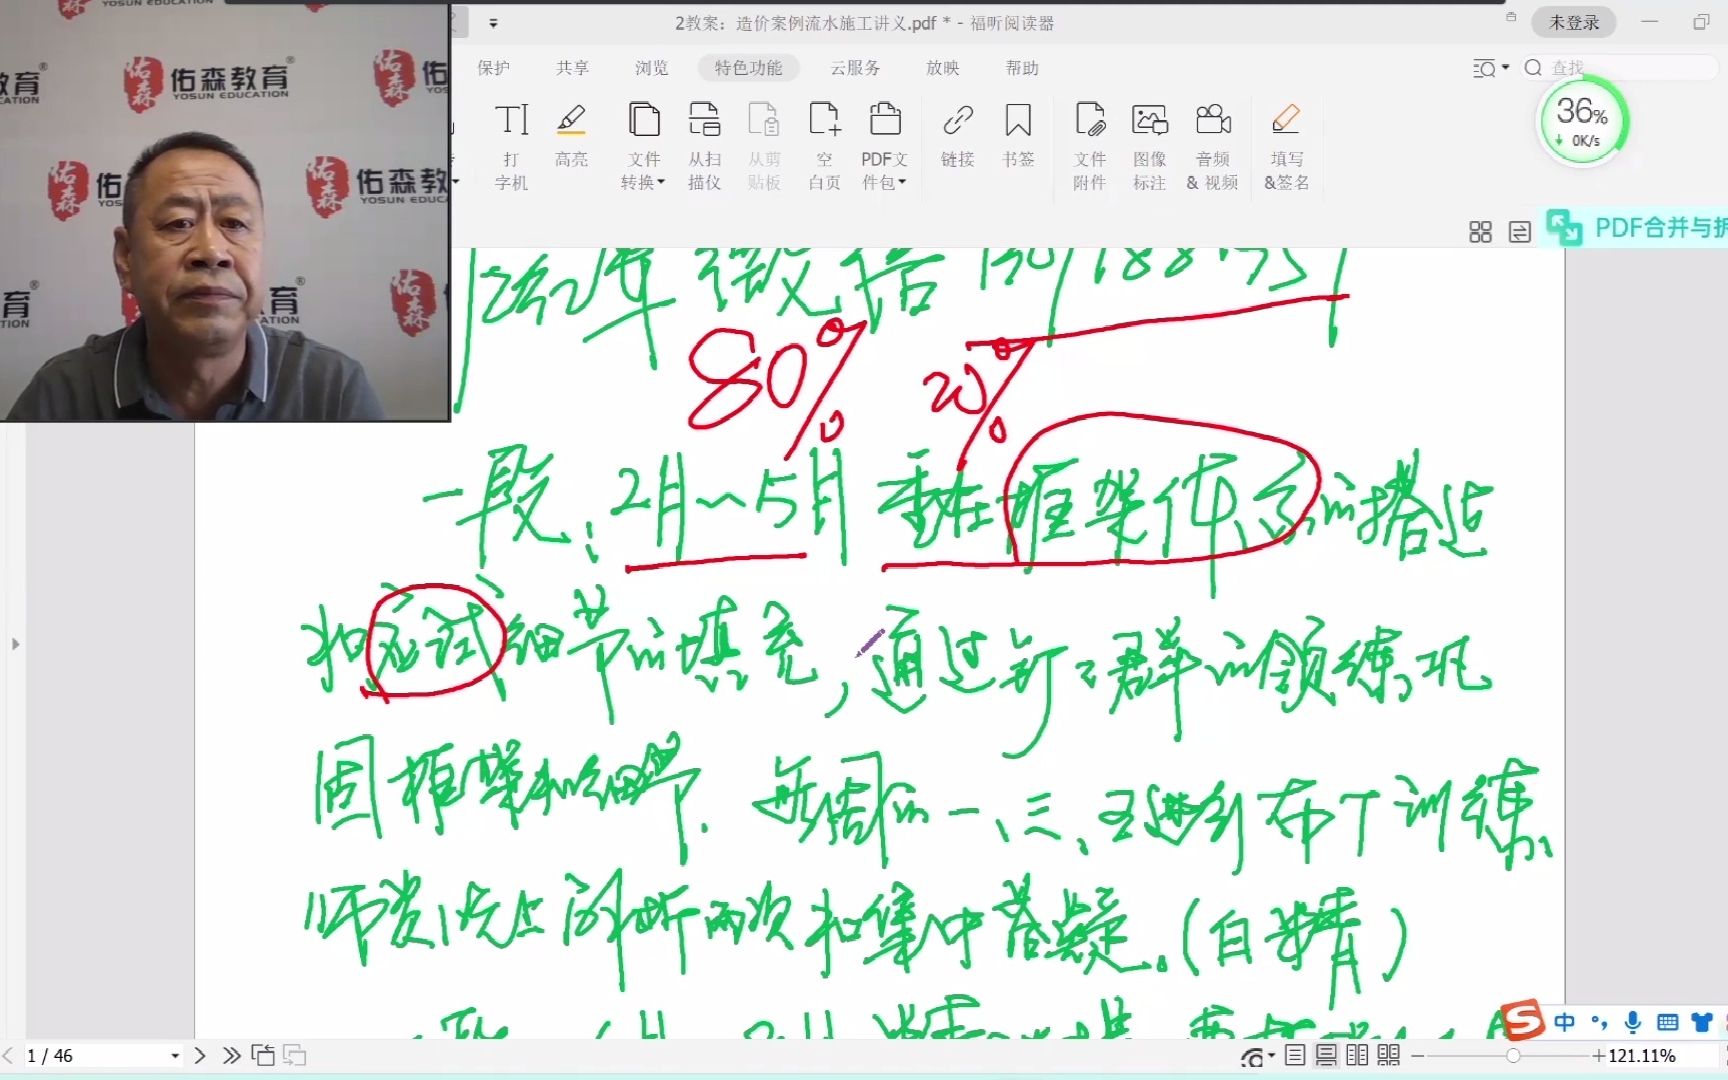 2教案：造价案例流水施工讲义.pdf * - 福昕阅读器
未登录
保护 共享 浏览 特色功能 云服务 放映 帮助
查找
36%
0K/s
打字机
高亮
文件转换
从扫描仪
从剪贴板
空白页
PDF文件包
链接
书签
文件附件
图像标注
音频& 视频
填写&签名
PDF合并与拆
佑森教育
YOSUN EDUCATION
佑森
佑森教
YOSUN EDUCA
80% 20%
一段：2月～5月重在框架体系的搭造
和应试细节的填充，通过钉钉群的领练巩
固框架和细节．每周的一、三、五进行布丁训练、
师资线上剖析两次和集中答疑．（白
1 / 46
中
121.11%